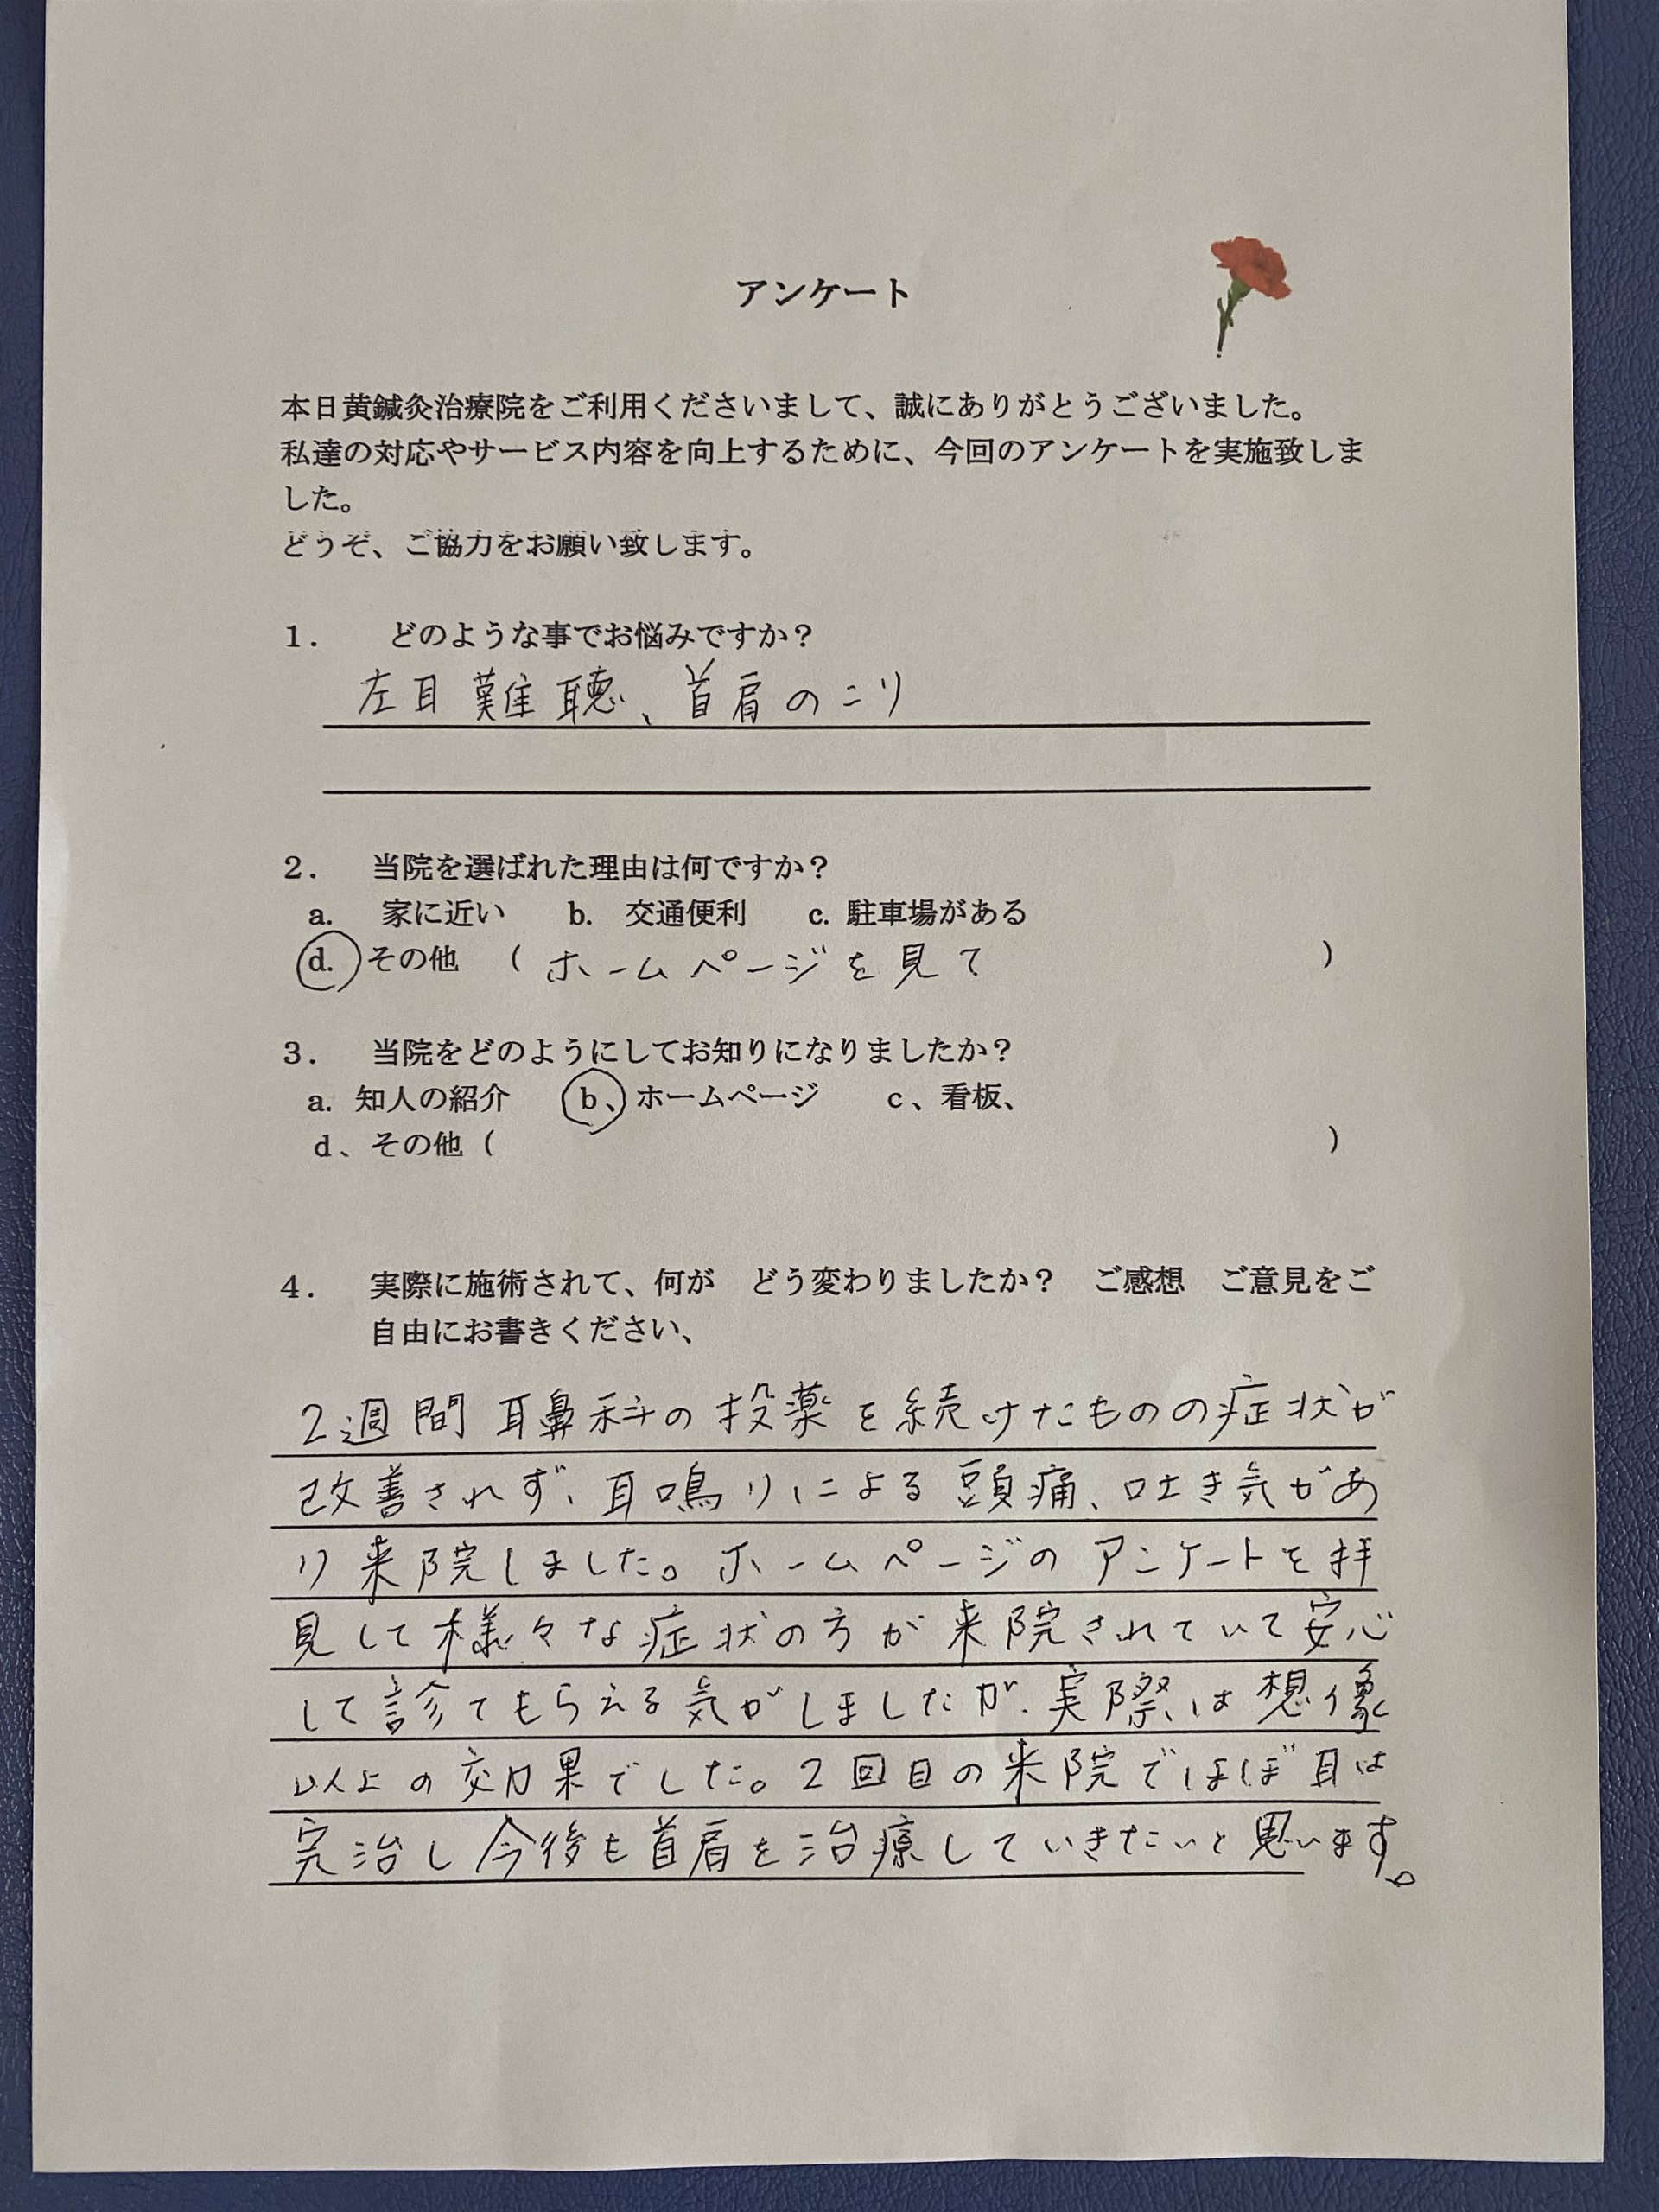 アンケート
本日黄鍼灸治療院をご利用くださいまして、誠にありがとうございました。
私達の対応やサービス内容を向上するために、今回のアンケートを実施致しま
した。
どうぞ、ご協力をお願い致します。
1. どのような事でお悩みですか?
左耳難聴、首肩のこり
2. 当院を選ばれた理由は何ですか?
a. 家に近い b. 交通便利 c. 駐車場がある
d. その他 ( ホームページを見て )
3. 当院をどのようにしてお知りになりましたか?
a. 知人の紹介 b、ホームページ c、看板、
d、その他 ( )
4. 実際に施術されて、何が どう変わりましたか? ご感想 ご意見をご
自由にお書きください、
2週間耳鼻科の投薬を続けたものの症状が
改善されず、耳鳴りによる頭痛、吐き気があ
り来院しました。ホームページのアンケートを拝
見して様々な症状の方が来院されていて安心
して診てもらえる気がしましたが、実際は想像
以上の効果でした。2回目の来院でほぼ耳は
完治し今後も首肩を治療していきたいと思います。